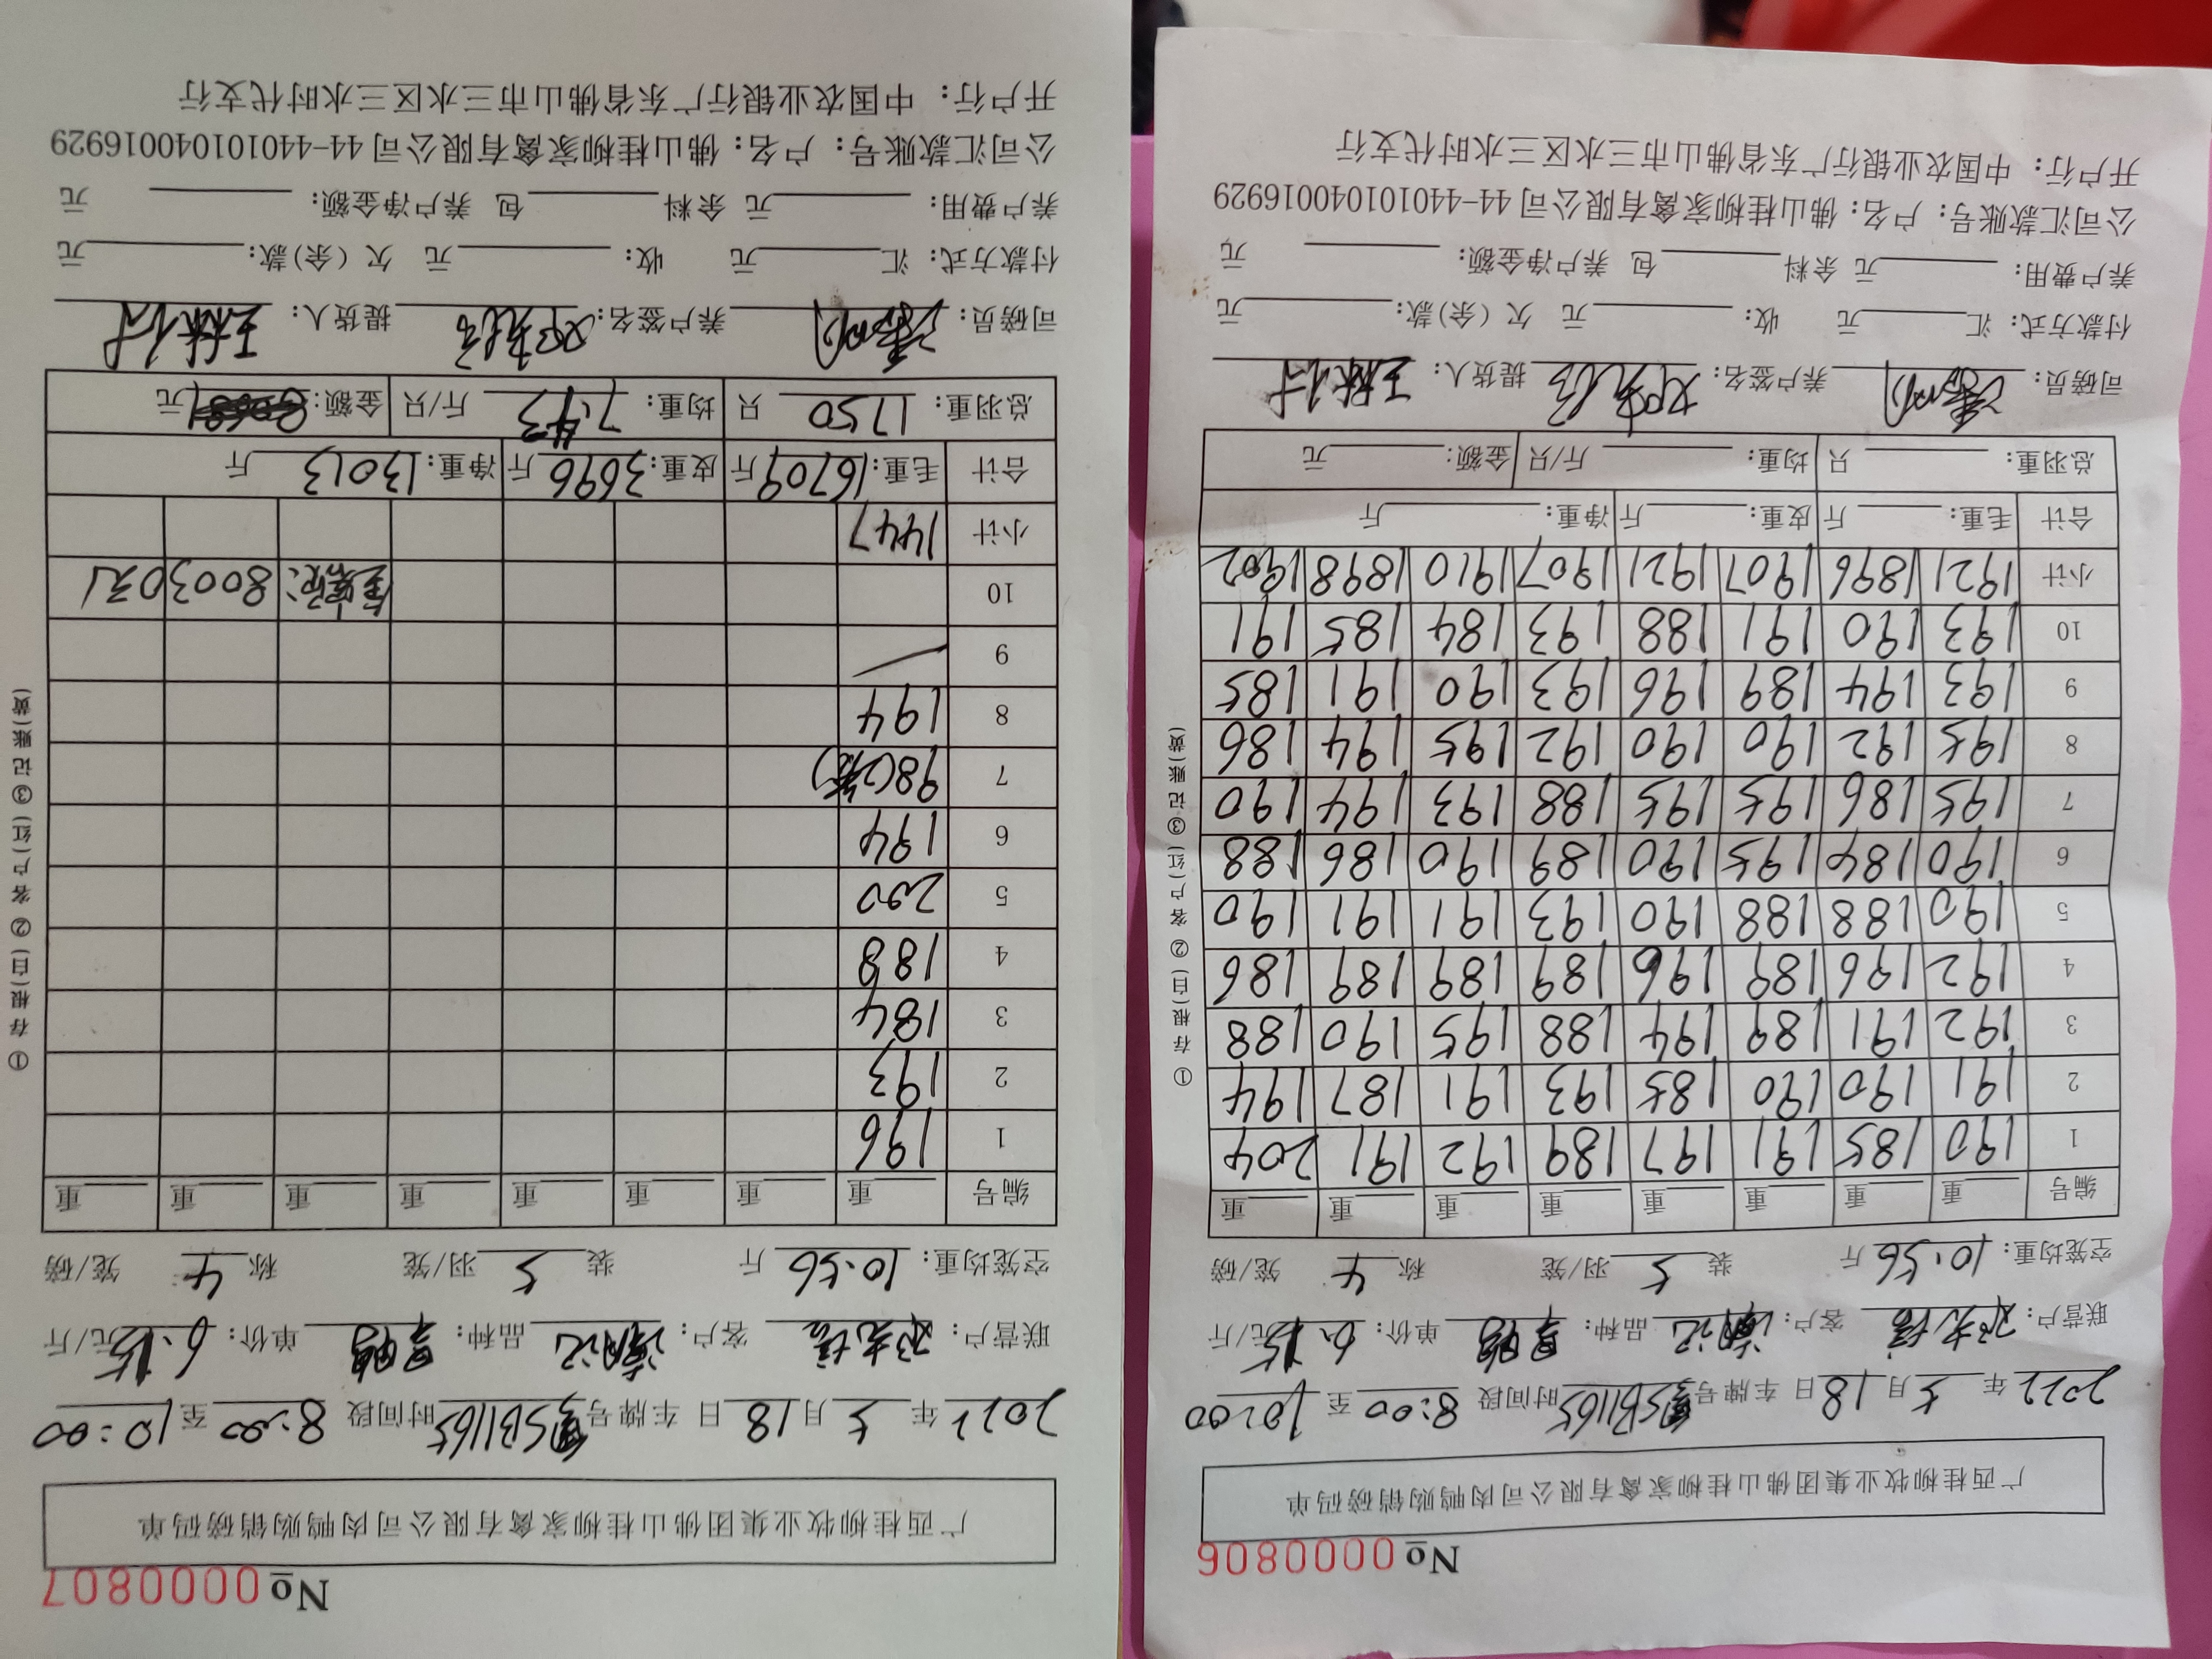 No 0000806
广西桂柳牧业集团佛山桂柳家禽有限公司肉鸭购销磅码单
2022年5月18日 车牌号 SB1165 时间段 8:00 至 10:00
联营户: 客户: 品种: 单价: 6.15元/斤
空笼均重: 10.56 斤 装 5 羽/笼 称 4 笼/磅
编号 重 重 重 重 重 重 重 重
1 190 185 191 197 189 192 191 204
2 191 190 190 185 193 191 187 194
3 192 191 189 194 188 195 190 188
4 192 196 189 196 189 189 189 186
5 190 188 188 190 193 191 191 190
6 190 184 195 190 189 190 186 188
7 195 186 195 195 188 193 194 190
8 195 192 190 190 192 195 194 186
9 193 194 189 196 193 190 191 185
10 193 190 191 188 193 184 185 191
小计 1921 1896 1907 1921 1907 1910 1898 1902
合计 毛重: 斤 皮重: 斤 净重: 斤
总羽重: 只 均重: 斤/只 金额: 元
司磅员: 养户签名: 提货人:
付款方式: 汇 元 收: 元 欠(余)款: 元
养户费用: 元 余料 包 养户净金额: 元
公司汇款账号: 户名: 佛山桂柳家禽有限公司 44-440101040016929
开户行: 中国农业银行广东省佛山市三水区三水时代支行
①存根(白) ②客户(红) ③记账(黄)
No 0000807
广西桂柳牧业集团佛山桂柳家禽有限公司肉鸭购销磅码单
2022年5月18日 车牌号 SB1165 时间段 8:00 至 10:00
联营户: 客户: 品种: 单价: 6.15元/斤
空笼均重: 10.56 斤 装 5 羽/笼 称 4 笼/磅
编号 重 重 重 重 重 重 重 重
1 196
2 193
3 184
4 188
5 200
6 194
7 98(2笼)
8 194
9
10 金额: 80030元
小计 1447
合计 毛重: 16709斤 皮重: 3696斤 净重: 13013斤
总羽重: 1750 只 均重: 7.43 斤/只 金额: 元
司磅员: 养户签名: 提货人:
付款方式: 汇 元 收: 元 欠(余)款: 元
养户费用: 元 余料 包 养户净金额: 元
公司汇款账号: 户名: 佛山桂柳家禽有限公司 44-440101040016929
开户行: 中国农业银行广东省佛山市三水区三水时代支行
①存根(白) ②客户(红) ③记账(黄)